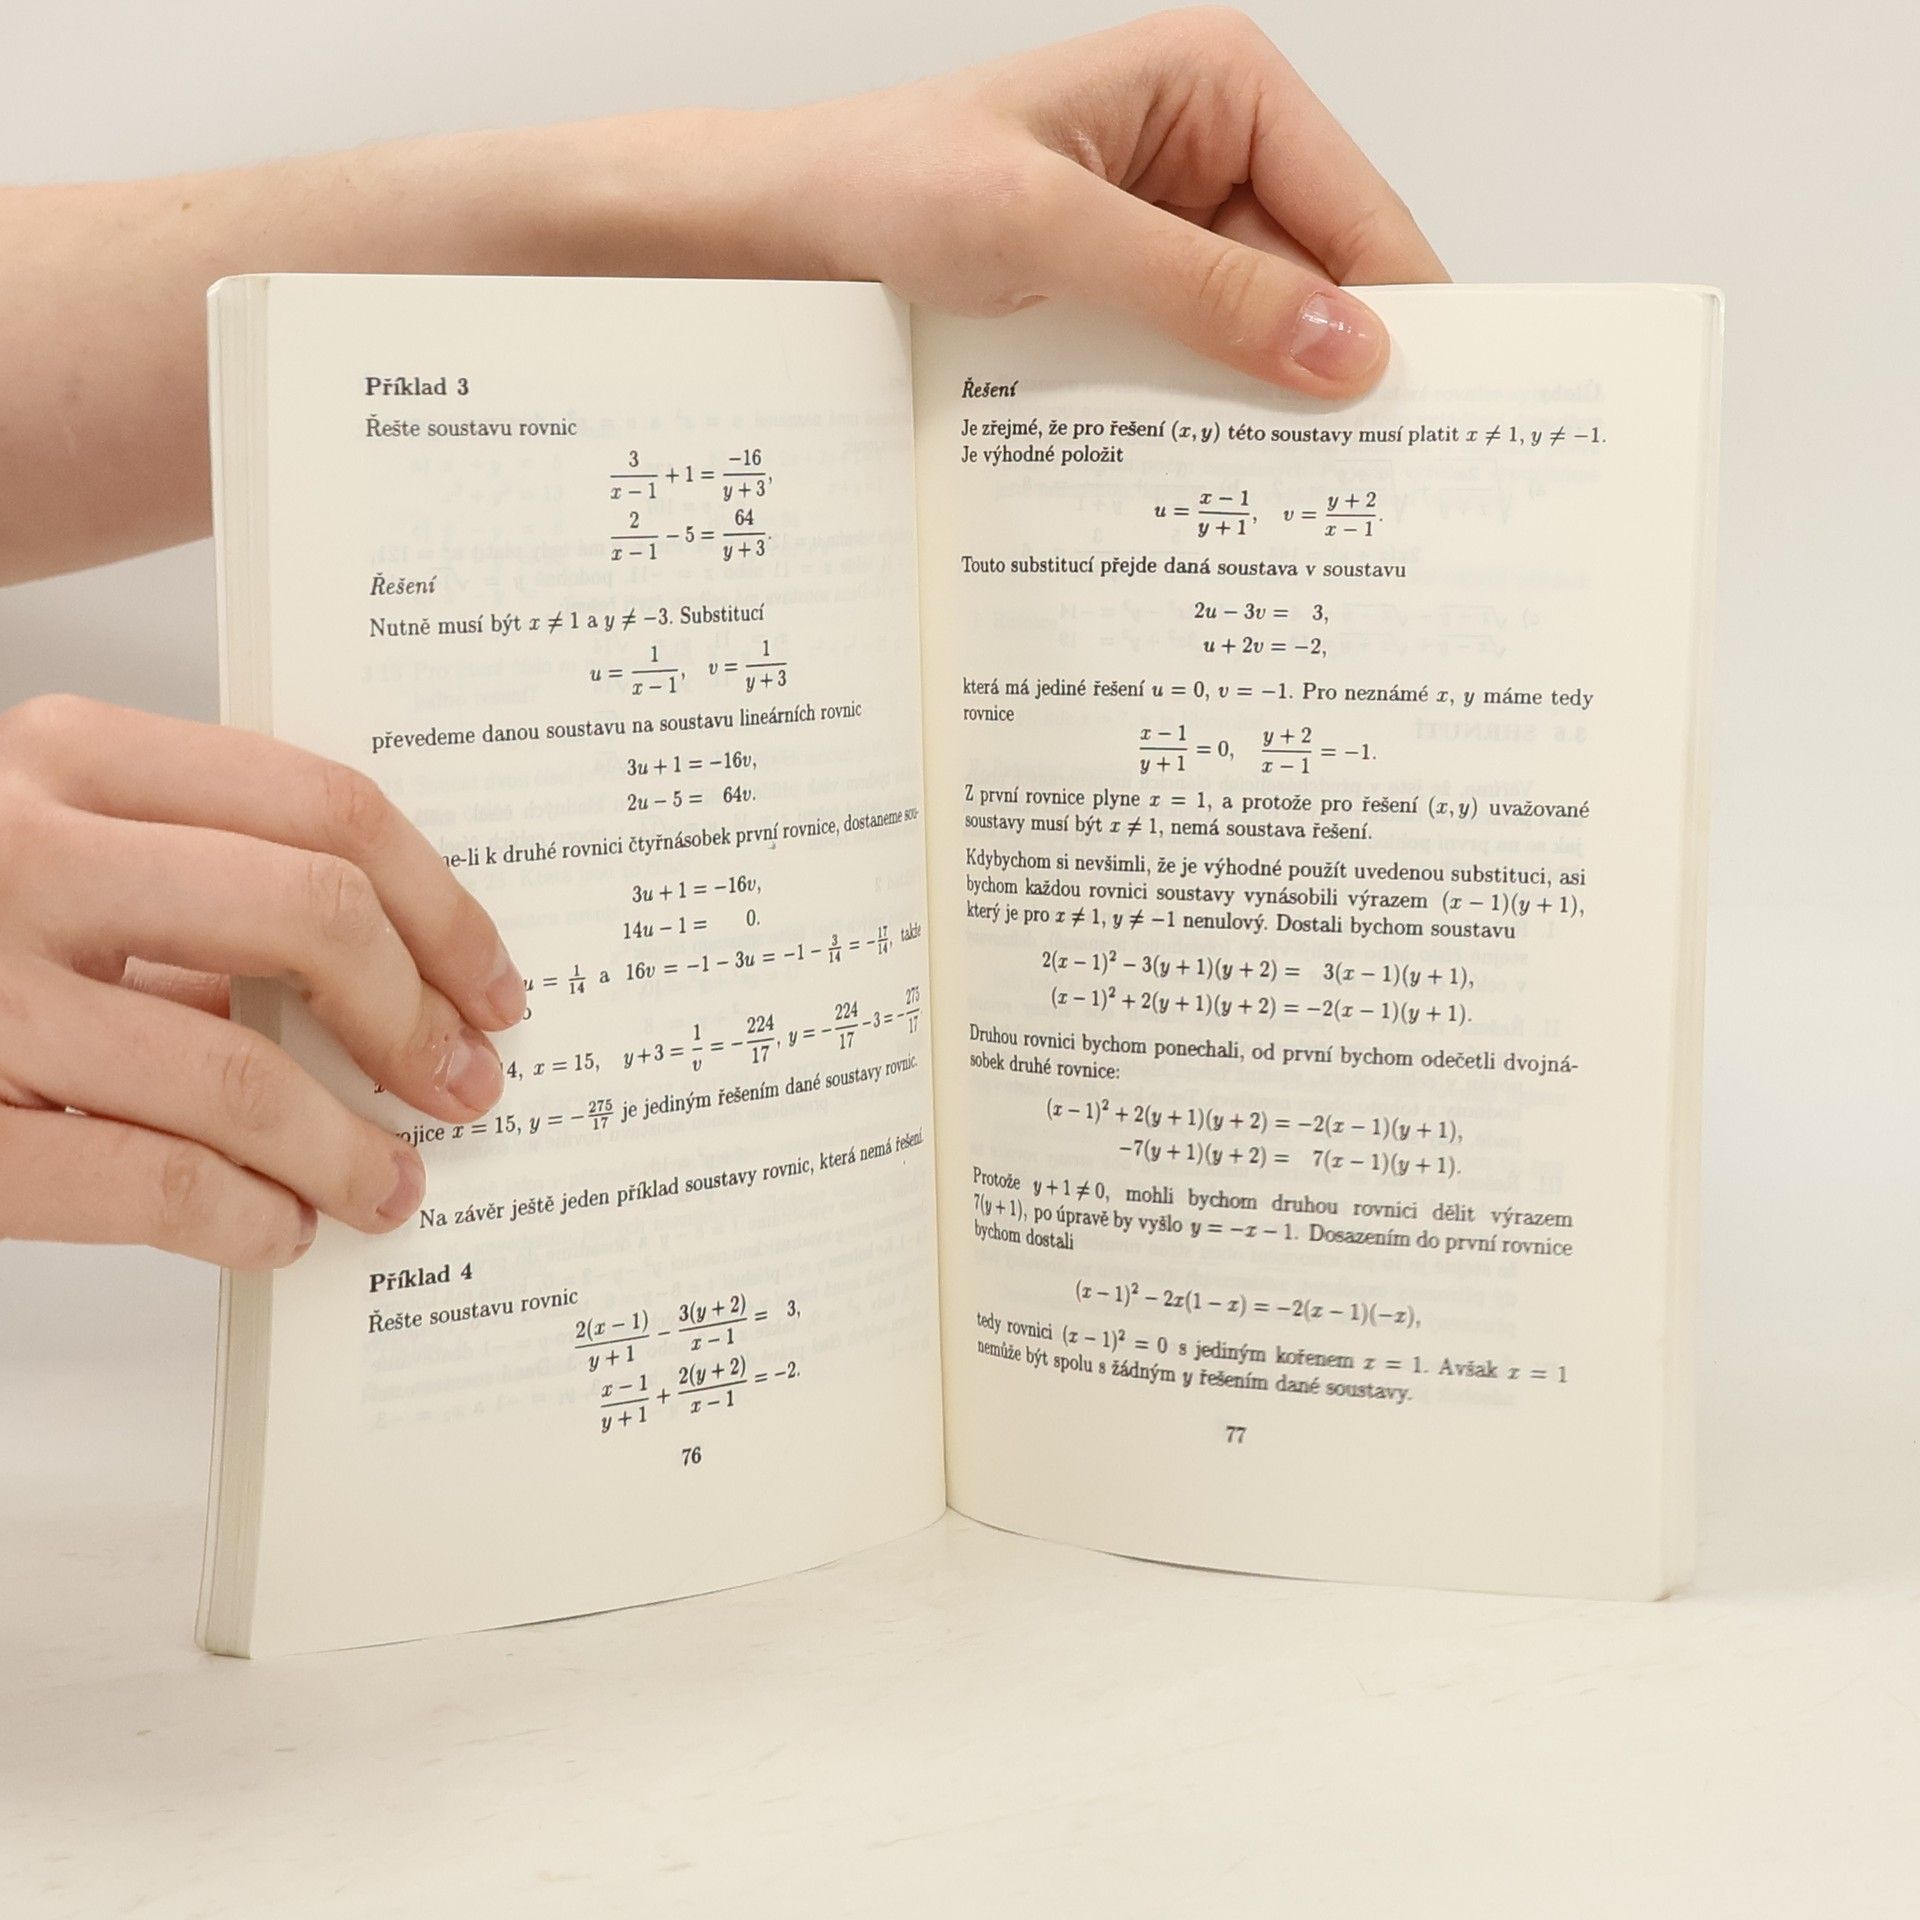 Příklad 3
Řešte soustavu rovnic
3/(x − 1) + 1 = −16/(y + 3),
2/(x − 1) − 5 = 64/(y + 3).
Řešení
Nutně musí být x ≠ 1 a y ≠ −3. Substitucí
u = 1/(x − 1), v = 1/(y + 3)
převedeme danou soustavu na soustavu lineárních rovnic
3u + 1 = −16v,
2u − 5 = 64v.
ne-li k druhé rovnici čtyřnásobek první rovnice, dostaneme sou-
3u + 1 = −16v,
14u − 1 = 0.
u = 1/14 a 16v = −1 − 3u = −1 − 3/14 = −17/14, takže
o
4, x = 15, y + 3 = 1/v = −224/17, y = −224/17 − 3 = −275/17.
ojice x = 15, y = −275/17 je jediným řešením dané soustavy rovnic.
Na závěr ještě jeden příklad soustavy rovnic, která nemá řešení.
Příklad 4
Řešte soustavu rovnic
2(x − 1)/(y + 1) − 3(y + 2)/(x − 1) = 3,
(x − 1)/(y + 1) + 2(y + 2)/(x − 1) = −2.
76
Řešení
Je zřejmé, že pro řešení (x, y) této soustavy musí platit x ≠ 1, y ≠ −1.
Je výhodné položit
u = (x − 1)/(y + 1), v = (y + 2)/(x − 1).
Touto substitucí přejde daná soustava v soustavu
2u − 3v = 3,
u + 2v = −2,
která má jediné řešení u = 0, v = −1. Pro neznámé x, y máme tedy
rovnice
(x − 1)/(y + 1) = 0, (y + 2)/(x − 1) = −1.
Z první rovnice plyne x = 1, a protože pro řešení (x, y) uvažované
soustavy musí být x ≠ 1, nemá soustava řešení.
Kdybychom si nevšimli, že je výhodné použít uvedenou substituci, asi
bychom každou rovnici soustavy vynásobili výrazem (x − 1)(y + 1),
který je pro x ≠ 1, y ≠ −1 nenulový. Dostali bychom soustavu
2(x − 1)² − 3(y + 1)(y + 2) = 3(x − 1)(y + 1),
(x − 1)² + 2(y + 1)(y + 2) = −2(x − 1)(y + 1).
Druhou rovnici bychom ponechali, od první bychom odečetli dvojná-
sobek druhé rovnice:
(x − 1)² + 2(y + 1)(y + 2) = −2(x − 1)(y + 1),
−7(y + 1)(y + 2) = 7(x − 1)(y + 1).
Protože y + 1 ≠ 0, mohli bychom druhou rovnici dělit výrazem
7(y + 1), po úpravě by vyšlo y = −x − 1. Dosazením do první rovnice
bychom dostali
(x − 1)² − 2x(1 − x) = −2(x − 1)(−x),
tedy rovnici (x − 1)² = 0 s jediným kořenem x = 1. Avšak x = 1
nemůže být spolu s žádným y řešením dané soustavy.
77